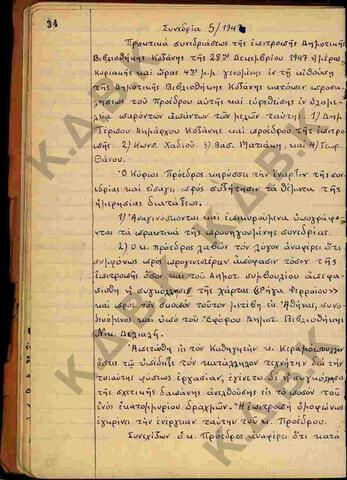 34
Συνεδρία 5/1947
Πρακτικά συνεδριάσεως της επιτροπής Δημοτικής
Βιβλιοθήκης Κοζάνης της 28ης Δεκεμβρίου 1947 ημέρας
Κυριακής και ώρας 4ης μ.μ. γενομένης εν τη αιθούση
της Δημοτικής Βιβλιοθήκης Κοζάνης κατόπιν προσκλή-
σεως του Προέδρου αυτής και ευρεθείσης εν
παρόντων απάντων των μελών ταύτης 1) Δημ.
Τέρπου Δημάρχου Κοζάνης και προέδρου της επιτρο-
πής. 2) Κωνσ. Χαδιού 3) Βασ. Ματιάκη και 4) Γεωρ.
Θάνου.
Ο Κύριος Πρόεδρος κηρύσσει την έναρξιν της συνε-
δρίας και εισάγει προς συζήτησιν τα θέματα της
ημερησίας διατάξεως.
1) Αναγινώσκονται και επικυρούμενα υπογράφον-
ται τα πρακτικά της προηγουμένης συνεδρίας.
2) Ο κ. πρόεδρος λαβών τον λόγον αναφέρει ότι
συμφώνως προς προγενεστέραν απόφασιν τόσον της
επιτροπής όσον και του Δημοτ. συμβουλίου απεφα-
σίσθη η συγκόλλησις της χάρτας (Ρήγα Φερραίου)
και προς τον σκοπόν τούτον μετέβη εις Αθήνας, συνο-
δευόμενος και υπό του Εφόρου Δημοτ. Βιβλιοθήκης
Νικ. Δελιαλή.
Απετάθη εις τον Καθηγητήν κ. Κεραμόπουλλον
όστις τω υπέδειξε τον κατάλληλον τεχνίτην διά την
τοιαύτης φύσεως εργασίαν, εγένετο η συγκόλλησις
της σχετικής δαπάνης ανελθούσης εις το ποσόν του
ενός εκατομμυρίου δραχμών. Η επιτροπή ομοφώνως
εγκρίνει την ενέργειαν ταύτην του κ. Προέδρου.
Συνεχίζων ο κ. Πρόεδρος αναφέρει ότι κατά
Κ.Δ.Β.Κ